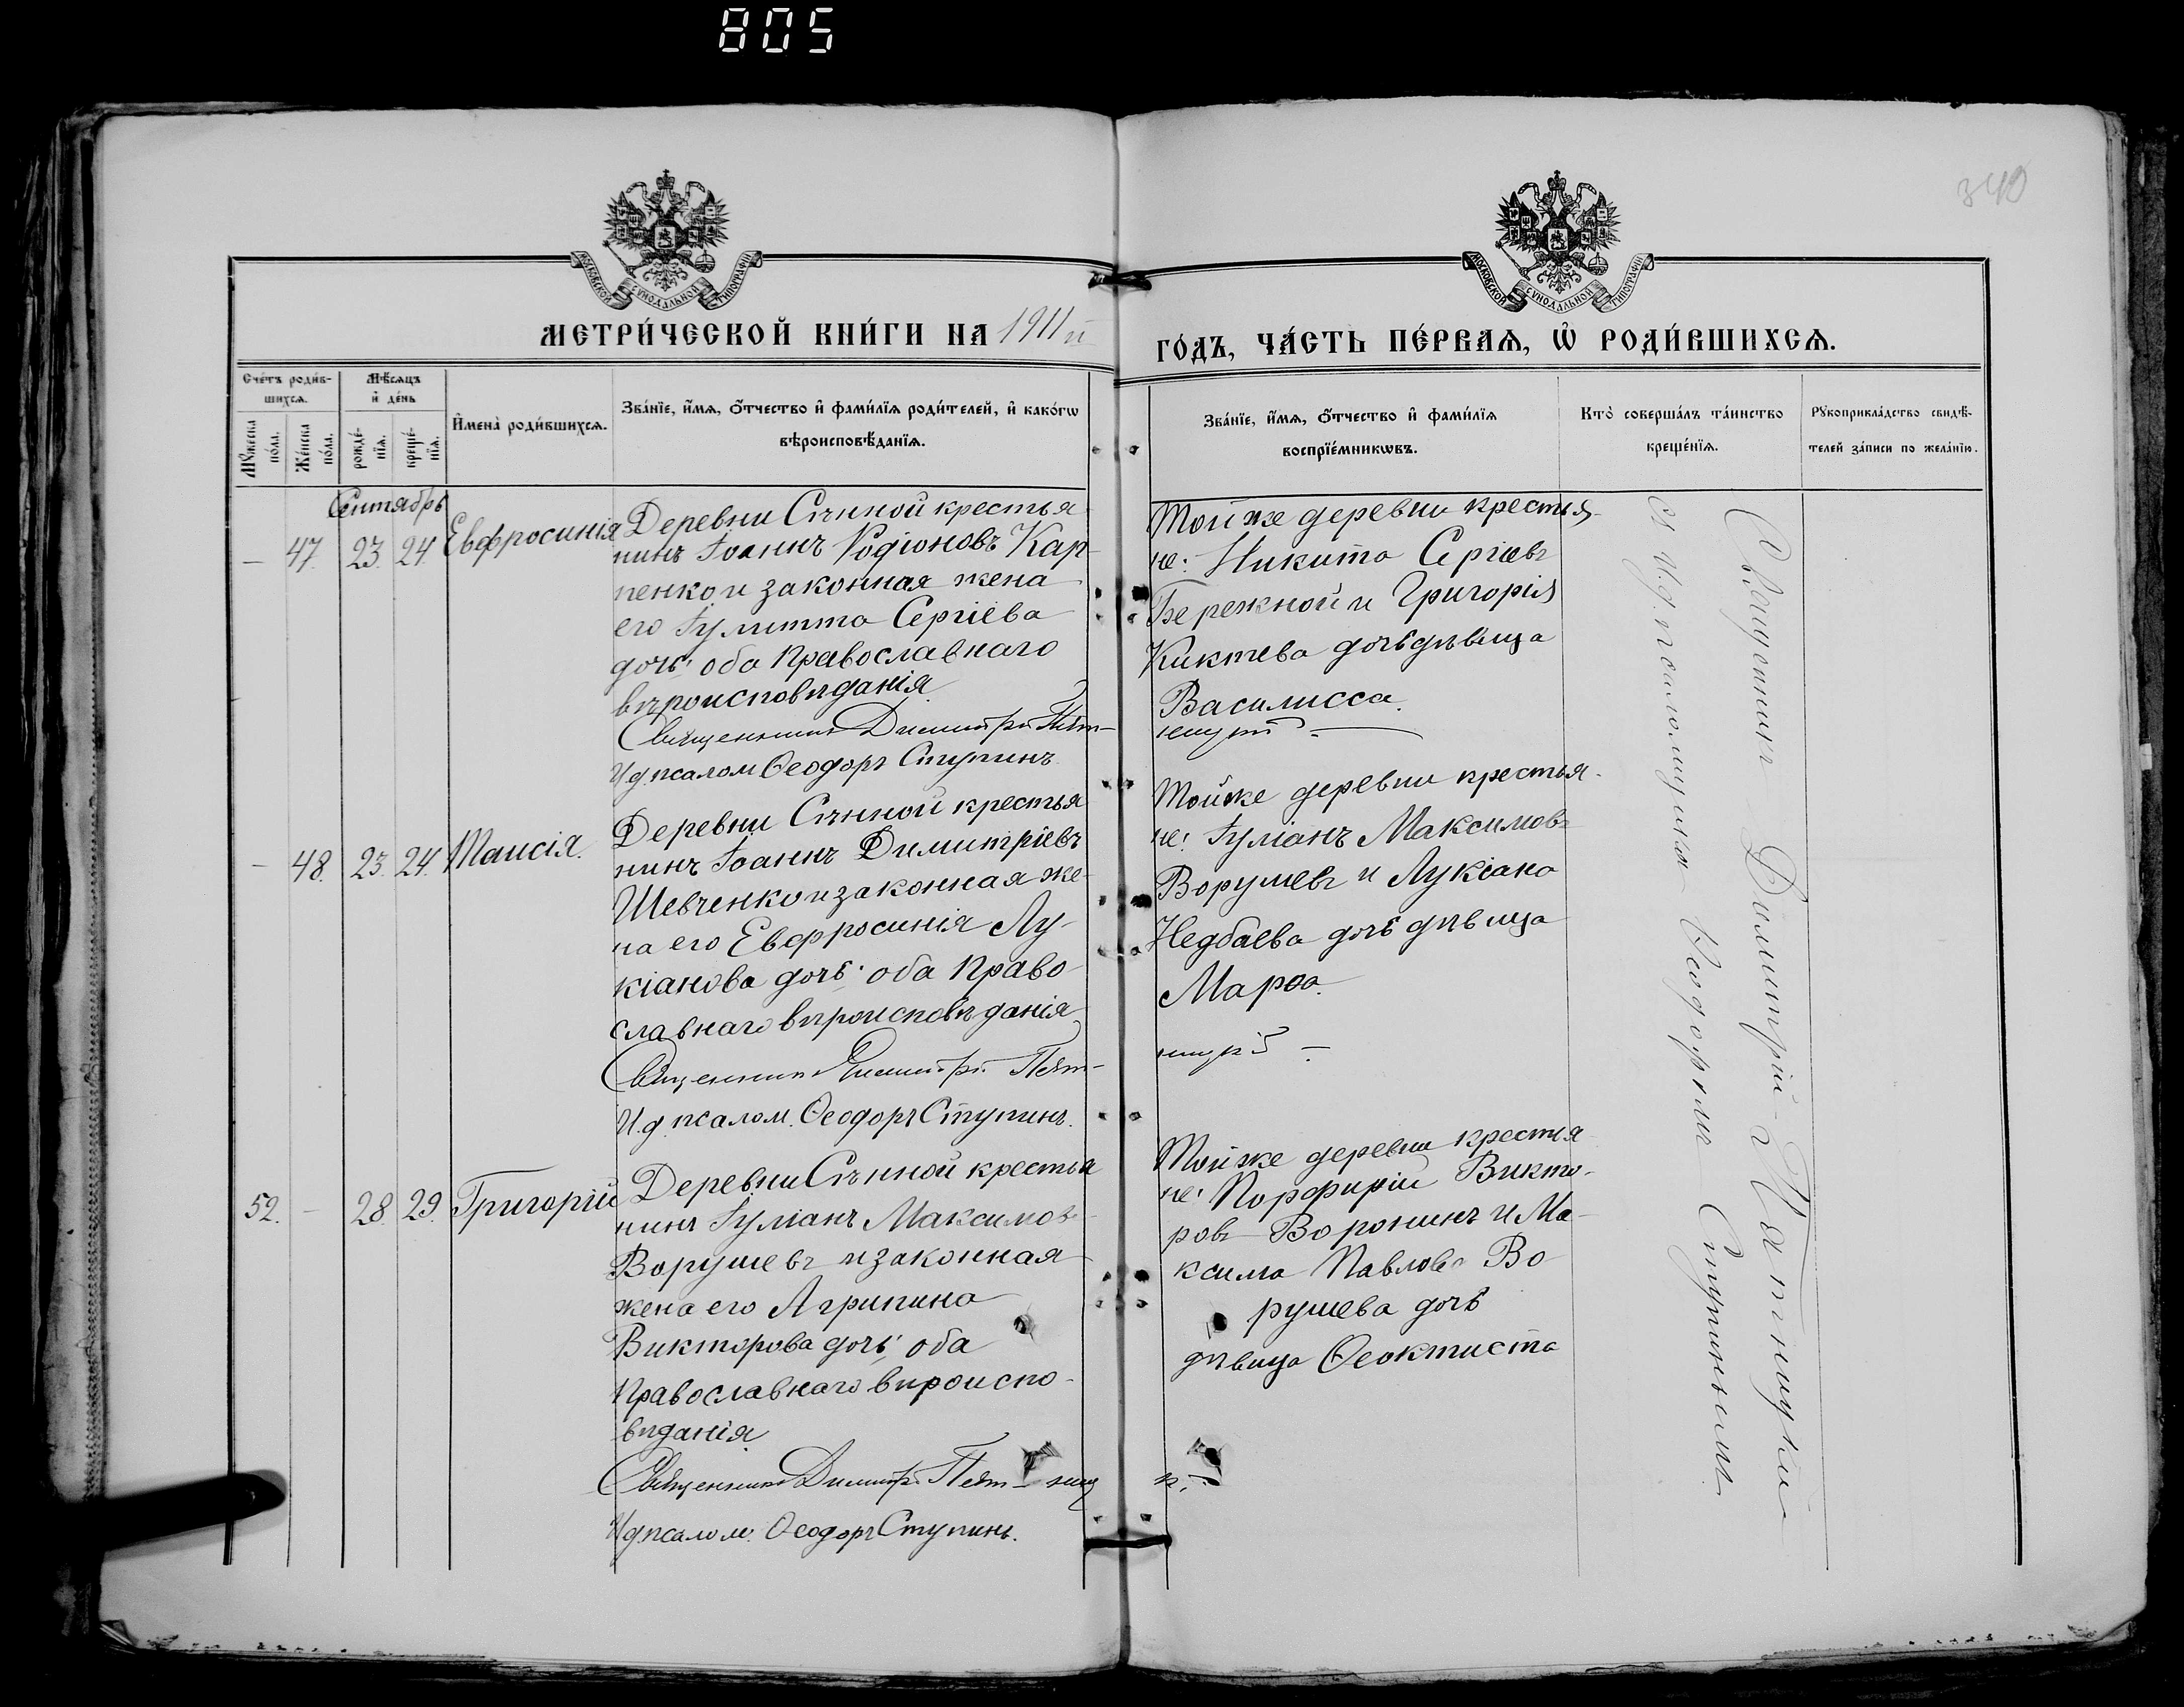 805
340
МОСКОВСКОЙ СѴНОДАЛЬНОЙ ТИПОГРАФІИ
МОСКОВСКОЙ СѴНОДАЛЬНОЙ ТИПОГРАФІИ
МЕТРИ́ЧЕСКОЙ КНИ́ГИ НА 1911й
ГО́ДЪ, ЧА́СТЬ ПЕ́РВАѦ, Ѡ҆ РОДИ́ВШИХСѦ.
Сче́тъ роди́в-
шихсѧ.
Мꙋ́жеска по́ла.
Же́нска по́ла.
Мѣ́сѧцъ
и҆ де́нь
рожде́-
нїѧ.
креще́-
нїѧ.
И҆мена̀ роди́вшихсѧ.
Зва́нїе, и҆́мѧ, ѻ҆́тчество и҆ фами́лїѧ роди́телей, и҆ како́гѡ
вѣроисповѣ́данїѧ.
Зва́нїе, и҆́мѧ, ѻ҆́тчество и҆ фами́лїѧ
воспрїе́мникѡвъ.
Кто̀ соверша́лъ та́инство
креще́нїѧ.
Рꙋкоприкла́дство свидѣ́-
телей за́писи по жела́нїю.
Сентябрь
— 47. 23. 24. Евфросинія
Деревни Сѣнной крестья
нинъ Іоаннъ Родіоновъ Кар-
пенко и законная жена
его Іулитта Сергіева
дочь; оба Православнаго
вѣроисповѣданія
Священникъ Димитрій Пят-
И д псалом Ѳеодоръ Ступинъ.
Той же деревни крестья-
не: Никита Сергіевъ
Бережной и Григорія
Киктева дочь дѣвица
Василисса.
ницкій —
— 48. 23. 24. Таисія.
Деревни Сѣнной крестья
нинъ Іоаннъ Димитріевъ
Шевченко и законная же-
на его Евфросинія Лу-
кіанова дочь; оба Право-
славнаго вѣроисповѣданія
Священникъ Димитрій Пят-
И.д. псалом. Ѳеодоръ Ступинъ.
Той же деревни крестья-
не: Іуліанъ Максимовъ
Ворушевъ и Лукіана
Недбаева дочь дѣвица
Марѳа.
ницкій —
52. — 28. 29. Григорій
Деревни Сѣнной крестья
нинъ Іуліанъ Максимовъ
Ворушевъ и законная
жена его Агрипина
Викторова дочь; оба
Православнаго вѣроиспо-
вѣданія
Священникъ Димитр. Пят- ниц к.
И д псалом. Ѳеодоръ Ступинъ.
Той же деревни крестья
не: Порфирій Викто-
ровъ Воронинъ и Ма-
ксима Павлова Во
рушева дочь
дѣвица Ѳеоктиста
Священникъ Димитрій Пятницкій
съ И.д. псаломщика Ѳеодоромъ Ступинымъ